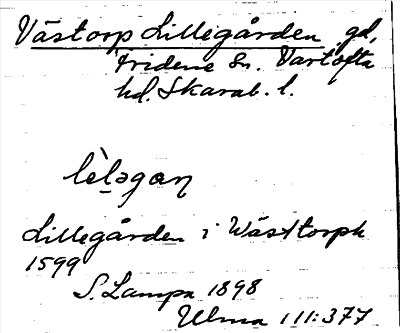 Västorp Lillegården gd,
Fridene sn. Vartofta
hd. Skarab. l.
lèləgaɳ
Lillegården i Wästtorph
1599
S. Lampa 1898
Ulma 111:377